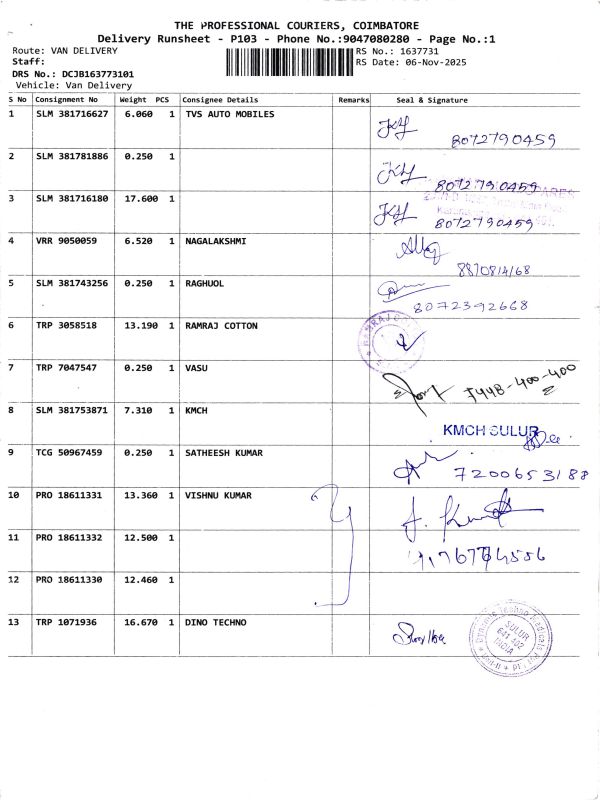 THE PROFESSIONAL COURIERS, COIMBATORE
Delivery Runsheet - P103 - Phone No.:9047080280 - Page No.:1
Route: VAN DELIVERY
RS No.: 1637731
Staff:
RS Date: 06-Nov-2025
DRS No.: DCJB163773101
Vehicle: Van Delivery
S No Consignment No Weight PCS Consignee Details Remarks Seal & Signature
1 SLM 381716627 6.060 1 TVS AUTO MOBILES
8072790459
2 SLM 381781886 0.250 1
8072790459
3 SLM 381716180 17.600 1
8072790459
4 VRR 9050059 6.520 1 NAGALAKSHMI
8870814168
5 SLM 381743256 0.250 1 RAGHUOL
8072392668
6 TRP 3058518 13.190 1 RAMRAJ COTTON
RAMRAJ
7 TRP 7047547 0.250 1 VASU
7448-400-400
8 SLM 381753871 7.310 1 KMCH
KMCH SULUR
9 TCG 50967459 0.250 1 SATHEESH KUMAR
7200653188
10 PRO 18611331 13.360 1 VISHNU KUMAR
11 PRO 18611332 12.500 1
12 PRO 18611330 12.460 1
13 TRP 1071936 16.670 1 DINO TECHNO
SULUR
641 402
INDIA